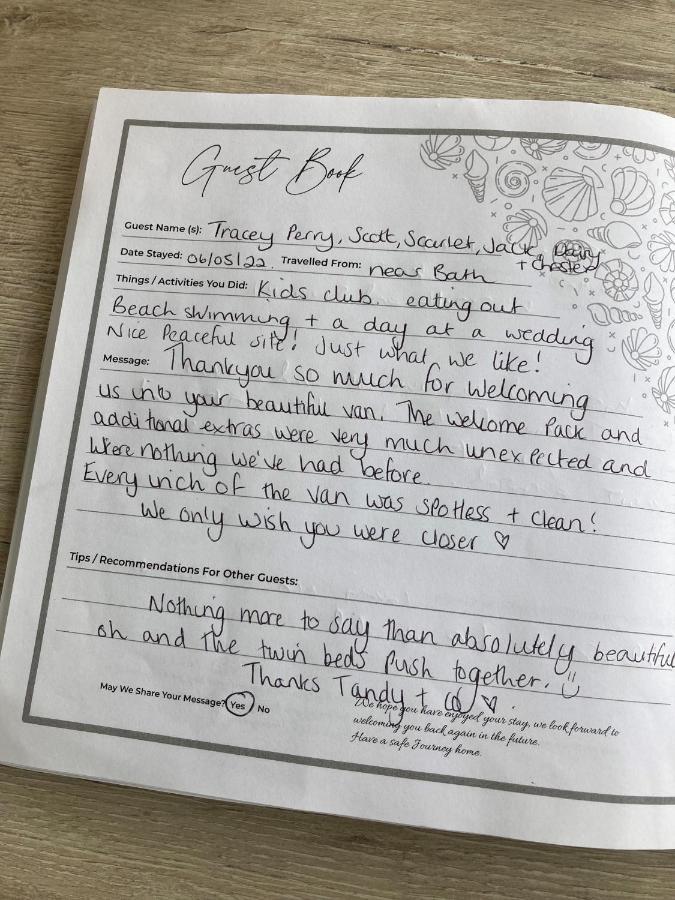 Guest Book
Guest Name (s): Tracey Perry, Scott, Scarlet, Jack,
Date Stayed: 06/05/22. Travelled From: near Bath + Chester
Things / Activities You Did: Kids club. eating out
Beach swimming + a day at a wedding
Nice Peaceful site! Just what we like!
Message: Thankyou so much for welcoming
us into your beautiful van. The welcome Pack and
additional extras were very much unexpected and
Were nothing we've had before.
Every inch of the van was spotless + clean!
We only wish you were closer ♡
Tips / Recommendations For Other Guests:
Nothing more to say than absolutely beautiful
oh and the twin beds Push together. :)
Thanks Tandy + co ♡.
May We Share Your Message? Yes No
We hope you have enjoyed your stay, we look forward to
welcoming you back again in the future.
Have a safe Journey home.